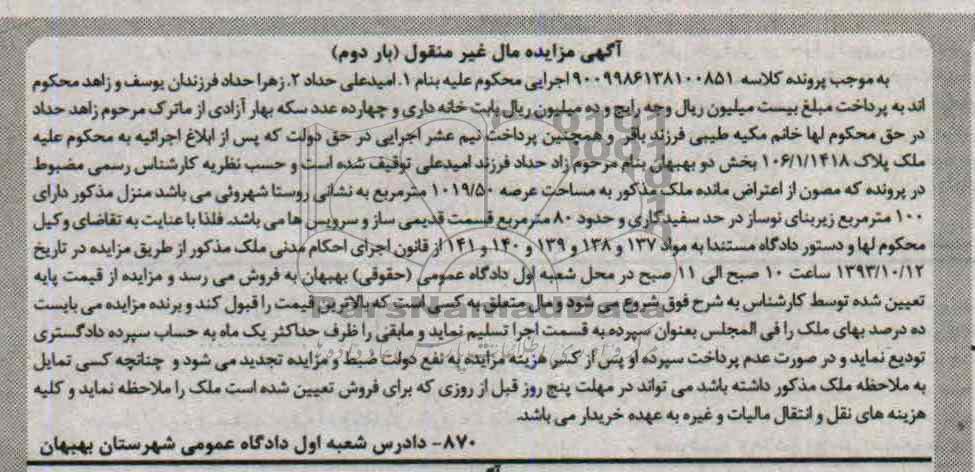 آگهی مزایده مال غیر منقول (بار دوم)
به موجب پرونده کلاسه ۹۰۰۹۹۸۶۱۳۸۱۰۰۸۵۱ اجرایی محکوم علیه بنام ۱. امیدعلی حداد ۲. زهرا حداد فرزندان یوسف و زاهد محکوم
اند به پرداخت مبلغ بیست میلیون ریال وجه رایج و ده میلیون ریال بابت خانه داری و چهارده عدد سکه بهار آزادی از ماترک مرحوم زاهد حداد
در حق محکوم لها خانم مکیه طیبی فرزند باقر و همچنین پرداخت نیم عشر اجرایی در حق دولت که پس از ابلاغ اجرائیه به محکوم علیه
ملک پلاک ۱۰۶/۱/۱۴۱۸ بخش دو بهبهان بنام مرحوم زاد حداد فرزند امیدعلی توقیف شده است و حسب نظریه کارشناس رسمی مضبوط
در پرونده که مصون از اعتراض مانده ملک مذکور به مساحت عرصه ۱۰۱۹/۵۰ مترمربع به نشانی روستا شهروئی می باشد منزل مذکور دارای
۱۰۰ مترمربع زیربنای نوساز در حد سفیدکاری و حدود ۸۰ مترمربع قسمت قدیمی ساز و سرویس ها می باشد. فلذا با عنایت به تقاضای وکیل
محکوم لها و دستور دادگاه مستندا به مواد ۱۳۷ و ۱۳۸ و ۱۳۹ و ۱۴۰ و ۱۴۱ از قانون اجرای احکام مدنی ملک مذکور از طریق مزایده در تاریخ
۱۳۹۳/۱۰/۱۲ ساعت ۱۰ صبح الی ۱۱ صبح در محل شعبه اول دادگاه عمومی (حقوقی) بهبهان به فروش می رسد و مزایده از قیمت پایه
تعیین شده توسط کارشناس به شرح فوق شروع می شود و مال متعلق به کسی است که بالاترین قیمت را قبول کند و برنده مزایده می بایست
ده درصد بهای ملک را فی المجلس بعنوان سپرده به قسمت اجرا تسلیم نماید و مابقی را ظرف حداکثر یک ماه به حساب سپرده دادگستری
تودیع نماید و در صورت عدم پرداخت سپرده او پس از کسر هزینه مزایده به نفع دولت ضبط و مزایده تجدید می شود و چنانچه کسی تمایل
به ملاحظه ملک مذکور داشته باشد می تواند در مهلت پنج روز قبل از روزی که برای فروش تعیین شده است ملک را ملاحظه نماید و کلیه
هزینه های نقل و انتقال مالیات و غیره به عهده خریدار می باشد.
۸۷۰- دادرس شعبه اول دادگاه عمومی شهرستان بهبهان
ParsNamadData